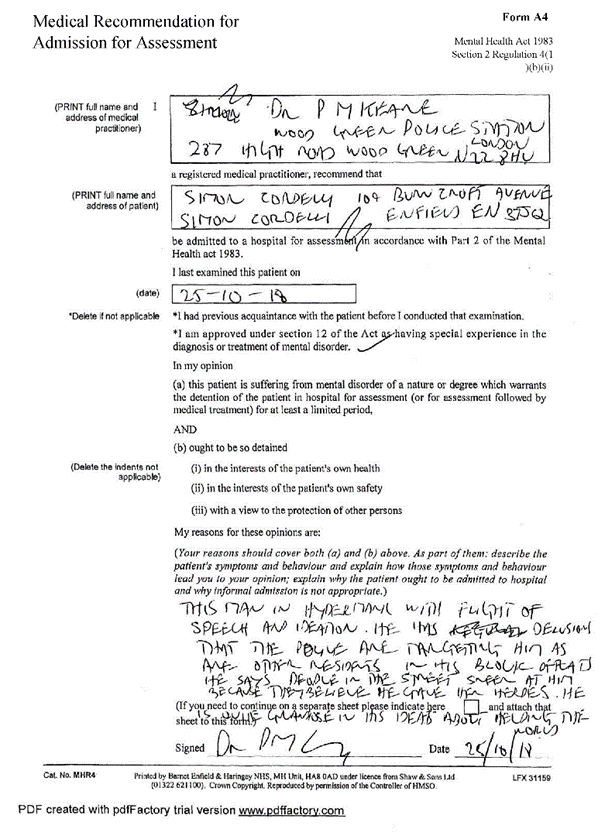 Medical Recommendation for
Admission for Assessment
Form A4
Mental Health Act 1983
Section 2 Regulation 4(1
)(b)(ii)
(PRINT full name and
address of medical
practitioner)
I
Dr P M KEANE
WOOD GREEN POLICE STATION
287 HIGH ROAD WOOD GREEN LONDON
N22 8HU
a registered medical practitioner, recommend that
(PRINT full name and
address of patient)
SIMON CORDELL 109 BURNCROFT AVENUE
SIMON CORDELL ENFIELD EN
be admitted to a hospital for assessment in accordance with Part 2 of the Mental
Health act 1983.
I last examined this patient on
(date)
25-10-18
*Delete if not applicable
*I had previous acquaintance with the patient before I conducted that examination.
*I am approved under section 12 of the Act as having special experience in the
diagnosis or treatment of mental disorder.
In my opinion
(a) this patient is suffering from mental disorder of a nature or degree which warrants
the detention of the patient in hospital for assessment (or for assessment followed by
medical treatment) for at least a limited period,
AND
(b) ought to be so detained
(Delete the indents not
applicable)
(i) in the interests of the patient's own health
(ii) in the interests of the patient's own safety
(iii) with a view to the protection of other persons
My reasons for these opinions are:
(Your reasons should cover both (a) and (b) above. As part of them: describe the
patient's symptoms and behaviour and explain how those symptoms and behaviour
lead you to your opinion; explain why the patient ought to be admitted to hospital
and why informal admission is not appropriate.)
THIS MAN IS HYPERMANIC WITH FLIGHT OF
SPEECH AND IDEATION. HE HAS DELUSION
THAT THE POLICE ARE TARGETING HIM AS
ARE OTHER RESIDENTS IN HIS BLOCK OF FLATS
HE SAYS PEOPLE IN THE STREET SNEER AT HIM
BECAUSE THEY BELIEVE HE GAVE HER HERPES. HE
(If you need to continue on a separate sheet please indicate here and attach that
sheet to this form)
IS GRANDIOSE IN HIS IDEAS ABOUT HELPING THE
WORLD
Signed Dr PM
Date 25/10/18
Cat. No. MHR4
Printed by Barnet Enfield & Haringey NHS, MH Unit, HA8 0AD under licence from Shaw & Sons Ltd
(01322 621100). Crown Copyright. Reproduced by permission of the Controller of HMSO.
LFX 31159
PDF created with pdfFactory trial version www.pdffactory.com